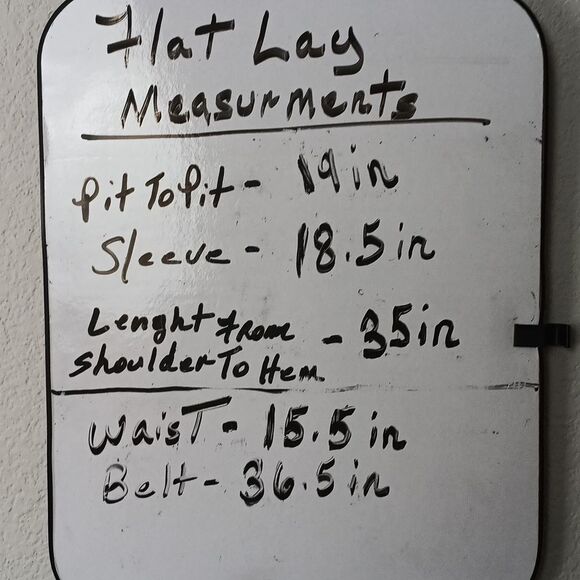 Flat Lay
Measurments
Pit To Pit - 19 in
Sleeve - 18.5 in
Lenght from
Shoulder To Hem - 35 in
Waist - 15.5 in
Belt - 36.5 in